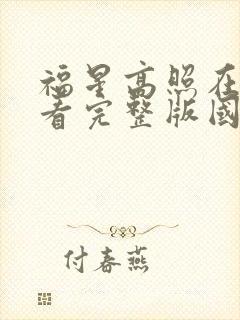 福星高照在
看完整版國
付春燕